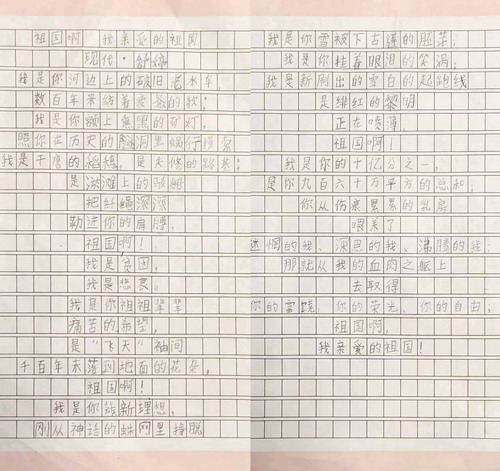 祖国啊 我亲爱的祖国
现代·舒婷
我是你河边上的破旧老水车,
数百年来纺着疲惫的歌;
我是你额上熏黑的矿灯,
照你在历史的隧洞里蜗行摸索
我是干瘪的稻穗,是失修的路基;
是淤滩上的驳船
把纤绳深深
勒进你的肩膊,
祖国啊!
我是贫困,
我是悲哀。
我是你祖祖辈辈
痛苦的希望,
是“飞天”袖间
千百年未落到地面的花朵,
祖国啊!
我是你簇新理想,
刚从神话的蛛网里挣脱
我是你雪被下古莲的胚芽;
我是你挂着眼泪的笑涡;
我是新刷出的雪白的起跑线
是绯红的黎明
正在喷薄,
祖国啊!
我是你的十亿分之一,
是你九百六十万平方的总和;
你从伤痕累累的乳房
喂养了
迷惘的我、深思的我、沸腾的我;
那就从我的血肉之躯上
去取得
你的富饶、你的荣光、你的自由;
祖国啊,
我亲爱的祖国!